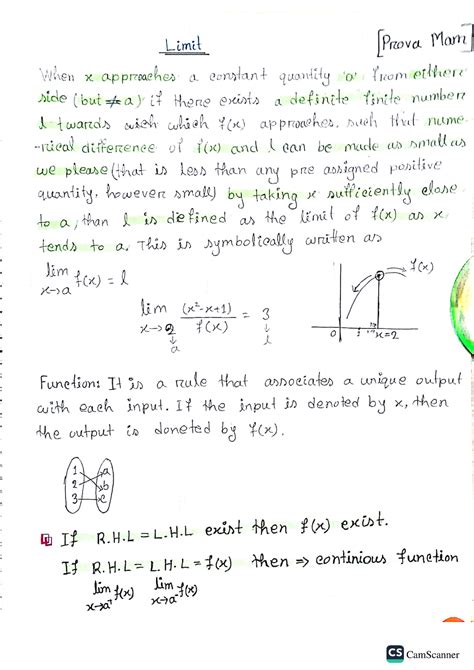 Limit [Prova Mam]
When x approaches a constant quantity 'a' from eithere
side (but ≠ a) if there exists a definite finite number
l twards wich which f(x) approaches. such that nume-
-rical difference of f(x) and l can be made as small as
we please (that is less than any pre assigned positive
quantity, however small) by taking x sufficiently close
to a, than l is defined as the limit of f(x) as x
tends to a. This is symbolically written as
lim f(x) = l
x→a
lim (x²-x+1)/f(x) = 3
x→2
↓ a ↓ l
f(x)
0 x=2
Function: It is a rule that associates a unique output
with each input. If the input is denoted by x, then
the output is doneted by f(x).
1 a
2 b
3 c
If R.H.L = L.H.L exist then f(x) exist.
If R.H.L = L.H.L = f(x) then ⇒ continious function
lim f(x) lim f(x)
x→a⁺ x→a⁻
CS CamScanner